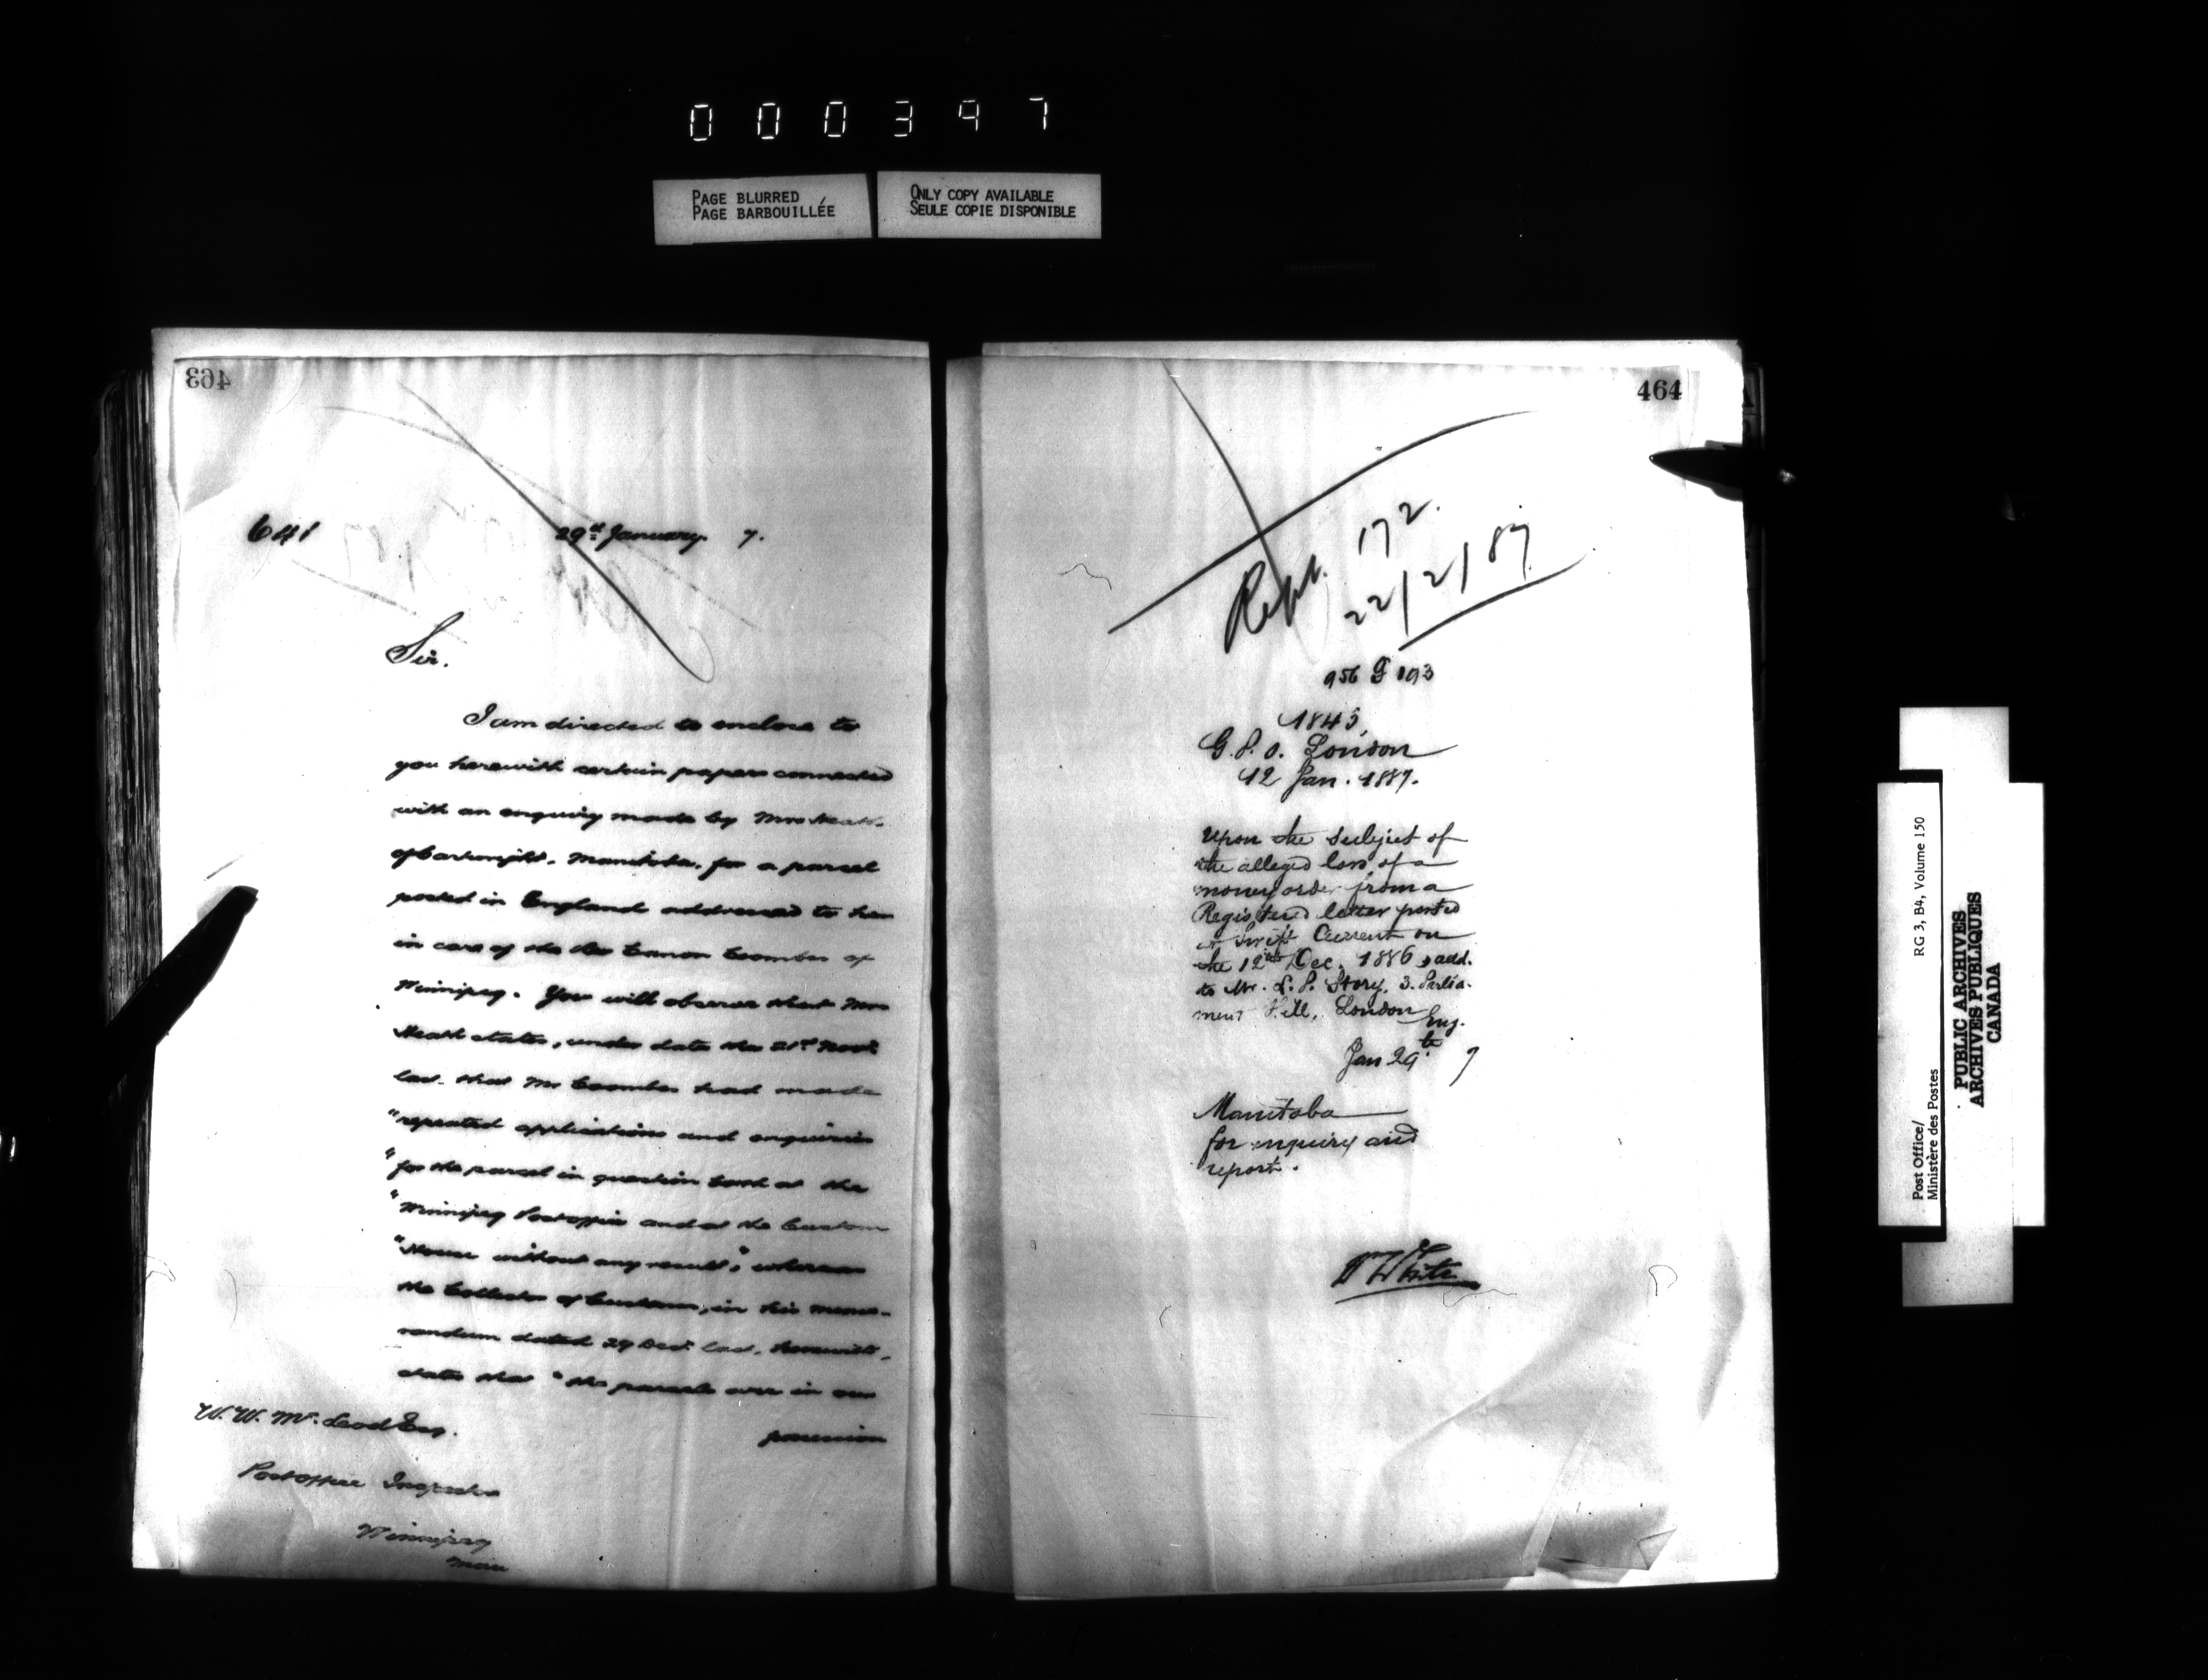 000397
PAGE BLURRED
PAGE BARBOUILLÉE
ONLY COPY AVAILABLE
SEULE COPIE DISPONIBLE
463
641
29th January 7.
Sir.
I am directed to enclose to
you herewith certain papers connected
with an enquiry made by Mrs Heath.
of Cartwright. Manitoba. for a parcel
posted in England addressed to her
in care of the Rev Canon Coombes of
Winnipeg. You will observe that Mrs
Heath states, under date the 21st Novr
last. that Mr Coombes had made
"repeated applications and enquiries
"for the parcel in question both at the
"Winnipeg Post office and at the Custom
"House without any result", whereas
the Collector of Customs, in his memo-
randum dated 29 Decr. last. herewith.
states that "the parcels are in our
possession
W. W. McLeod Esq.
Post Office Inspector
Winnipeg
Man
464
Reply. 172.
22/2/87
956 G 193
1843,
G.P.O. London
12 Jan. 1887.
Upon the subject of
the alleged loss of a
money order from a
Registered letter posted
at Swift Current on
the 12th Dec. 1886, add.
to Mr. L. P. Story, 3. Parlia-
ment Hill, London
Eng.
Jan 29th 7
Manitoba
for enquiry and
report.
Wm White
Post Office/
Ministère des Postes
RG 3, B4, Volume 150
PUBLIC ARCHIVES
ARCHIVES PUBLIQUES
CANADA